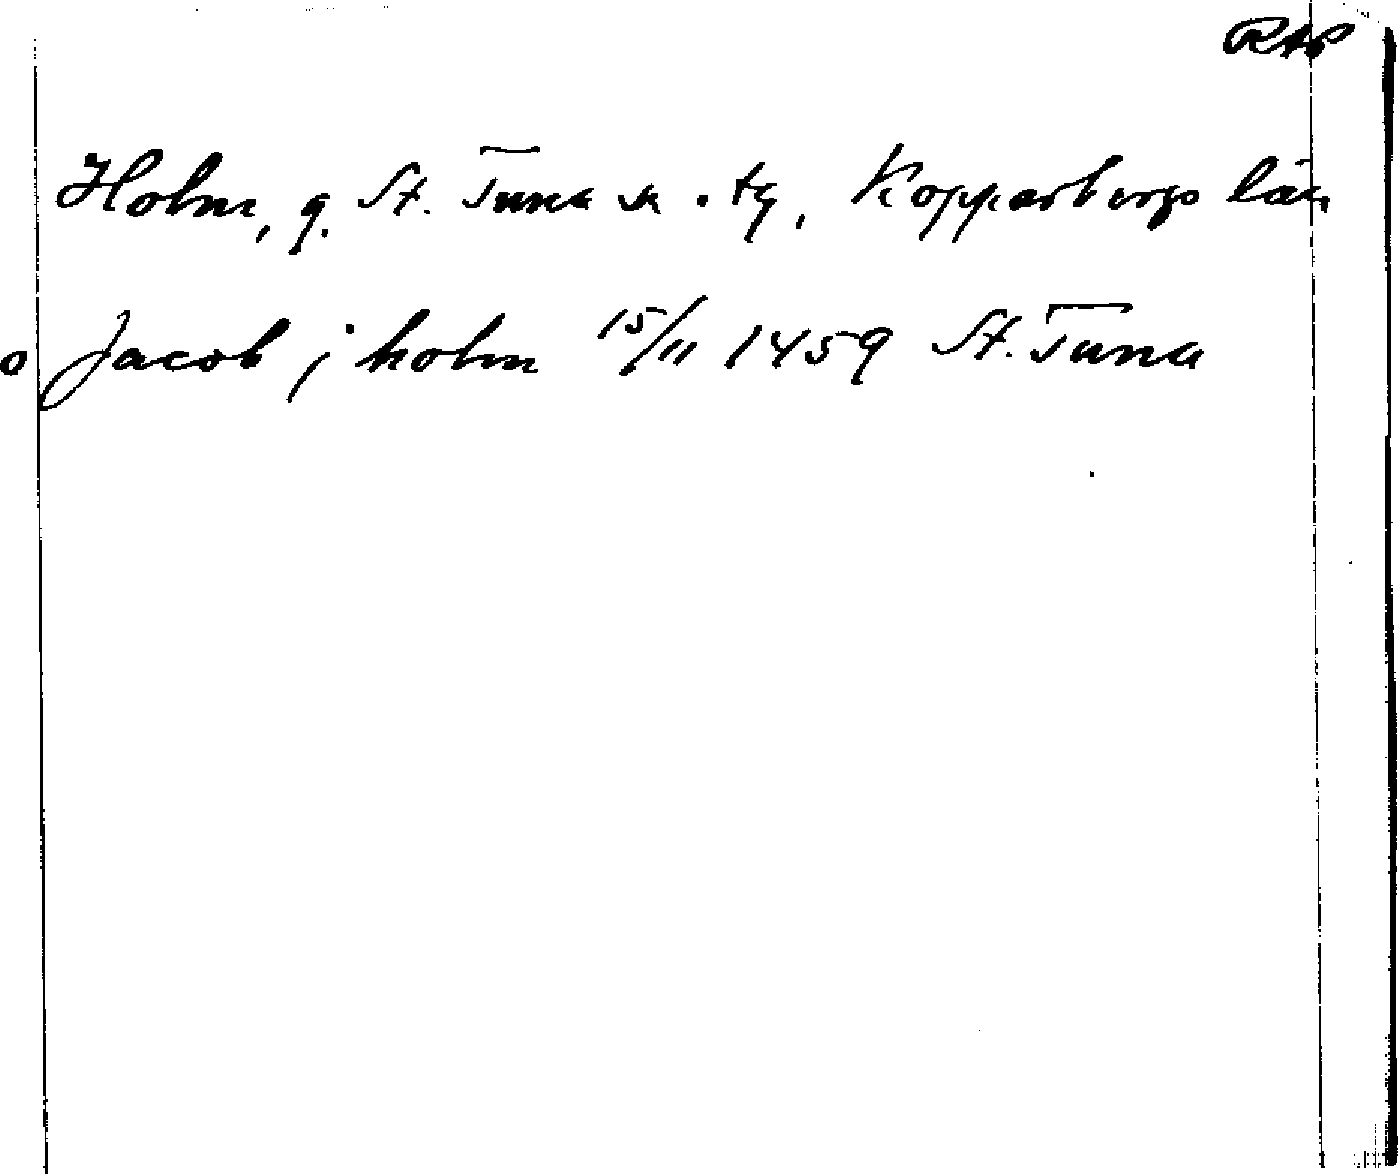 RAP
Holm, g. St. Tuna sn o. tg, Kopparbergs län
o Jacob j holm 15/11 1459 St. Tuna